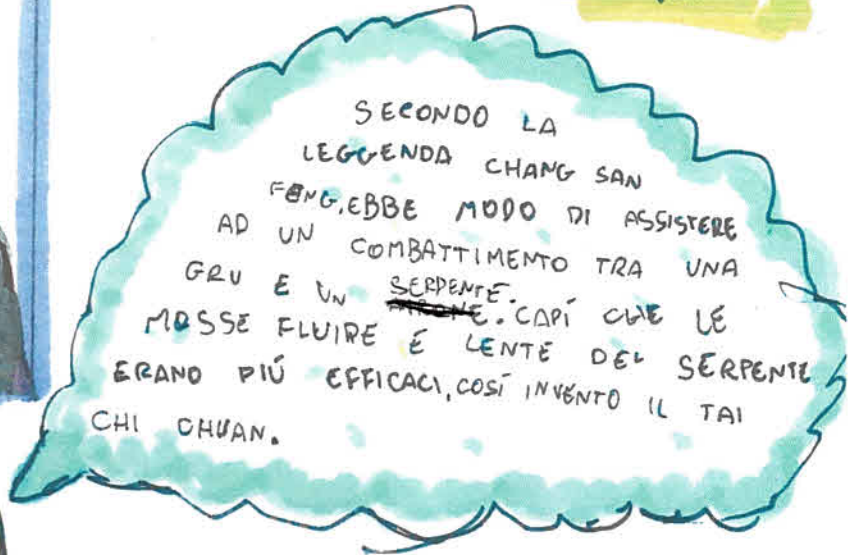 SECONDO LA
LEGGENDA CHANG SAN
FENG, EBBE MODO DI ASSISTERE
AD UN COMBATTIMENTO TRA UNA
GRU E UN SERPENTE.
. CAPÍ CHE LE
MOSSE FLUIRE E LENTE DEL SERPENTE
ERANO PIÚ EFFICACI, COSÍ INVENTO IL TAI
CHI CHUAN.